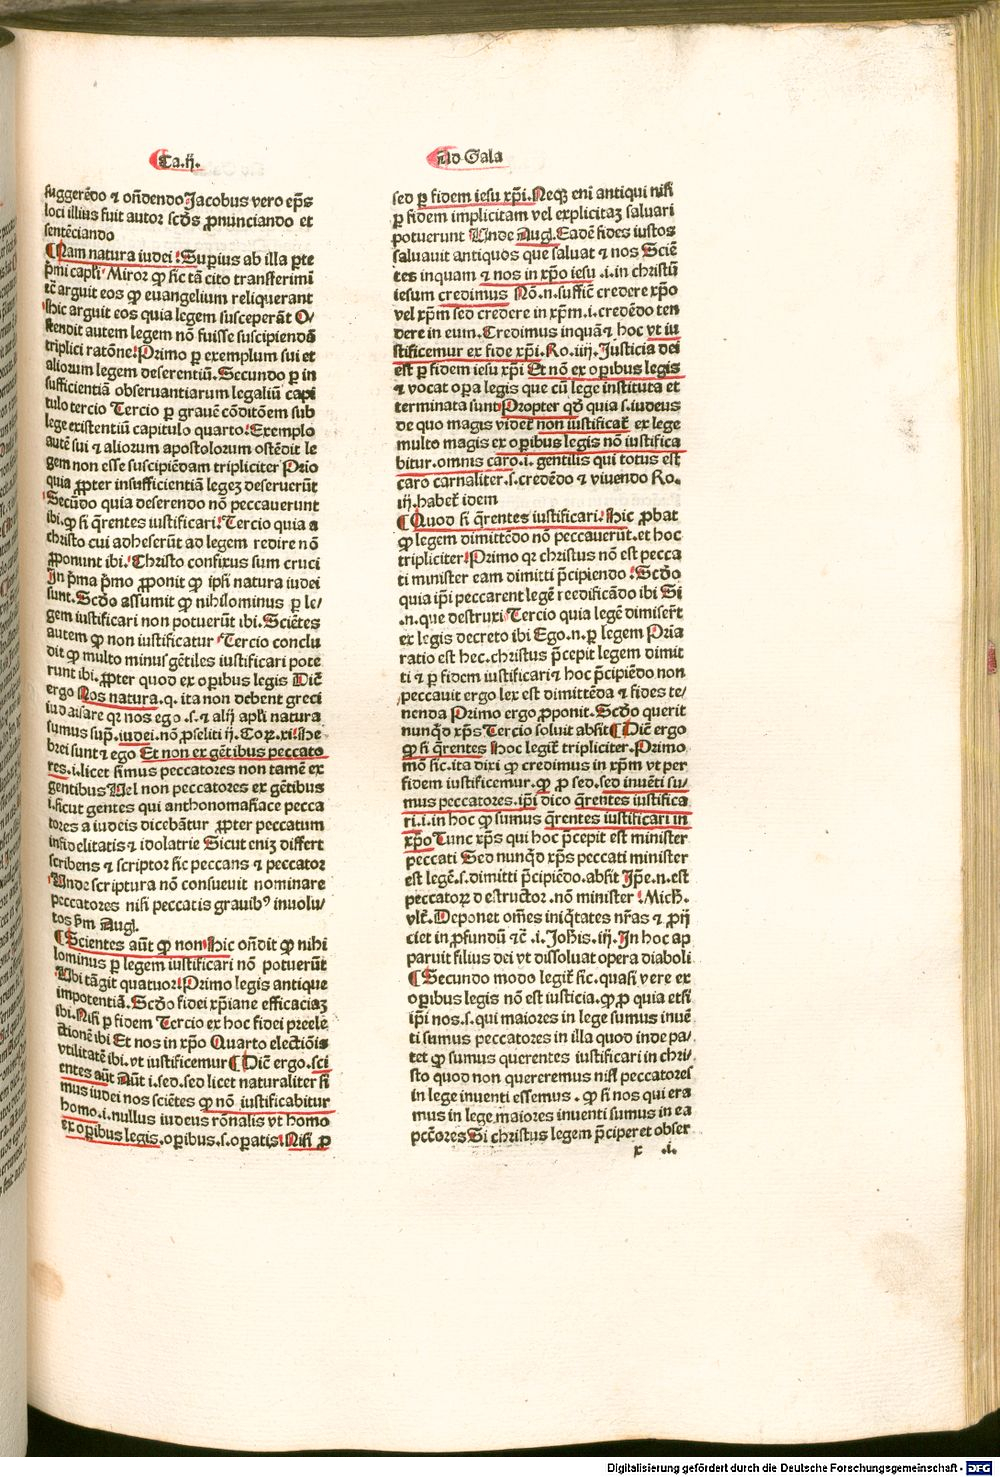 Ca.ij.
suggerēdo ⁊ on̄dendo Jacobus vero ep̄s
loci illius fuit autor scd̄s ꝓnunciando et
sentēciando
¶ Nam natura iudei Suꝑius ab illa ꝑte
p̄mi capl̄i Miror ꝙ sic tā cito transferimī
tc̄ arguit eos ꝙ euangelium reliquerant
Hic arguit eos quia legem susceperāt O/
stendit autem legem nō fuisse suscipiendā
triplici ratōne Primo ꝑ exemplum sui et
aliorum legem deserentiū. Secundo ꝑ in
sufficientiā obseruantiarum legaliū capi
tulo tercio Tercio ꝑ grauē cōditōem sub
lege existentiū capitulo quarto. Exemplo
autē sui ⁊ aliorum apostolorum ostēdit le
gem non esse suscipiēdam tripliciter Prīo
quia ꝓpter insufficientiā legeʒ deseruerūt
Secūdo quia deserendo nō peccauerunt
ibi. ꝙ si q̄rentes iustificari. Tercio quia a
christo cui adheserūt ad legem redire nō
ꝓponunt ibi. Christo confixus sum cruci
In p̄ma p̄mo ꝓponit ꝙ ip̄si natura iudei
sunt. Scd̄o assumit ꝙ nihilominus ꝑ le/
gem iustificari non potuerūt ibi. Sciētes
autem ꝙ non iustificatur Tercio conclu
dit ꝙ multo minus gētiles iustificari pote
runt ibi. ꝓpter quod ex oꝑibus legis Dic̄
ergo Nos natura. q. ita non debent greci
iudaisare qꝛ nos ego .s. ⁊ alij apl̄i natura
sumus sup̄. iudei. nō ꝓseliti ij. Coꝝ. xi. He
brei sunt ⁊ ego Et non ex gētibus peccato
res. i. licet simus peccatores non tamē ex
gentibus Vel non peccatores ex gētibus
i. sicut gentes qui anthonomasiace pecca
tores a iudeis dicebātur ꝓpter peccatum
infidelitatis ⁊ idolatrie Sicut eniʒ differt
scribens ⁊ scriptor sic peccans ⁊ peccator
Unde scriptura nō consueuit nominare
peccatores nisi peccatis grauibꝰ inuolu/
tos ẜm Aug.
¶ Scientes aūt ꝙ non Hic on̄dit ꝙ nihi
lominus ꝑ legem iustificari nō potuerūt
Ubi tāgit quatuor Primo legis antique
impotentiā. Scd̄o fidei xp̄iane efficaciaʒ
ibi. Nisi ꝑ fidem Tercio ex hoc fidei preele
ctionē ibi Et nos in xp̄o Quarto electiōis
vtilitatē ibi. vt iustificemur ¶ Dic̄ ergo. sci
entes aūt Aūt i. sed. sed licet naturaliter si
mus iudei nos sciētes ꝙ nō iustificabitur
homo. i. nullus iudeus rōnalis vt homo
ex oꝑibus legis. oꝑibus .s. oꝑatis. Nisi ꝑ
Ad Gala
sed ꝑ fidem iesu xp̄i. Neqꝫ enī antiqui nisi
ꝑ fidem implicitam vel explicitaʒ saluari
potuerunt Unde Aug. Eadē fides iustos
saluauit antiquos que saluat ⁊ nos Sciē
tes inquam ⁊ nos in xp̄o iesu .i. in christū
iesum credimus Nō. n. suffic̄ credere xp̄o
vel xp̄m sed credere in xp̄m. i. credēdo ten
dere in eum. Credimus inquā ⁊ hoc vt iu
stificemur ex fide xp̄i. Ro. iij. Justicia dei
est ꝑ fidem iesu xp̄i Et nō ex oꝑibus legis
⁊ vocat oꝑa legis que cū lege instituta et
terminata sunt Propter qd̄ quia .s. iudeus
de quo magis videt̄ non iustificat̄ ex lege
multo magis ex oꝑibus legis nō iustifica
bitur. omnis caro. i. gentilis qui totus est
caro carnaliter. s. credēdo ⁊ viuendo Ro.
iij. habet̄ idem
¶ Quod si q̄rentes iustificari. Hic ꝓbat
ꝙ legem dimittēdo nō peccauerūt. et hoc
tripliciter Primo qꝛ christus nō est pecca
ti minister eam dimitti p̄cipiendo Scd̄o
quia ip̄i peccarent legē reedificādo ibi Si
.n. que destruxi Tercio quia legē dimiser̄t
ex legis decreto ibi Ego. n. ꝑ legem Pria
ratio est hec. christus p̄cepit legem dimit
ti ⁊ ꝑ fidem iustificari ⁊ hoc p̄cipiēdo non
peccauit ergo lex est dimittēda ⁊ fides te/
nenda Primo ergo ꝓponit. Scd̄o querit
nunqd̄ xp̄s Tercio soluit absit ¶ Dic̄ ergo
ꝙ si q̄rentes Hoc legit̄ tripliciter. Primo
mō sic. ita dixi ꝙ credimus in xp̄m vt per
fidem iustificemur. ꝙ ꝓ sed. sed inuēti su/
mus peccatores. ip̄i dico q̄rentes iustifica
ri. i. in hoc ꝙ sumus q̄rentes iustificari in
xp̄o Tunc xp̄s qui hoc p̄cepit est minister
peccati Sed nunqd̄ xp̄s peccati minister
est legē. s. dimitti p̄cipiēdo. absit Ip̄e. n. est
peccatoꝝ destructor. nō minister. Mich̄.
vlt̄. Deponet om̄es iniq̄tates nr̄as ⁊ ꝓij
ciet in ꝓfundū ⁊c̄. i. Joh̄is. iij. In hoc ap
paruit filius dei vt dissoluat opera diaboli
¶ Secundo modo legit̄ sic. quasi vere ex
oꝑibus legis nō est iusticia. ꝙ ꝓ quia etsi
ip̄i nos. s. qui maiores in lege sumus inuē
ti sumus peccatores in illa quod inde pa/
tet ꝙ sumus querentes iustificari in chri/
sto quod non quereremus nisi peccatores
in lege inuenti essemus. ꝙ si nos qui era
mus in lege maiores inuenti sumus in ea
pctōres Si christus legem p̄ciperet obser
x .i.
Digitalisierung gefördert durch die Deutsche Forschungsgemeinschaft - DFG